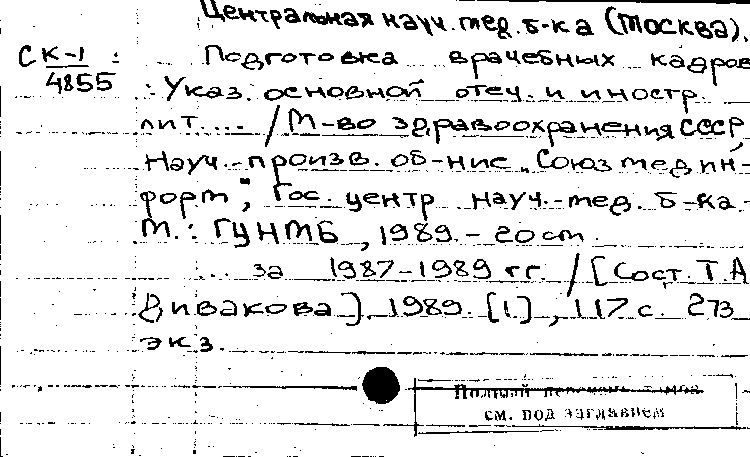 Центральная науч. мед. б-ка (Москва).
СК-1 : Подготовка врачебных кадров
4855 : Указ. основной отеч. и иностр.
лит.... / М-во здравоохранения СССР,
Науч.-произв. об-ние "Союзмедин-
форм", Гос. центр. науч.-мед. б-ка.-
М.: ГЦНМБ, 1989.- 20 см.
... за 1987-1989 гг. / [Сост. Т.А
Дивакова], 1989. [1], 117 с. 273
экз.
Полный перечень томов
см. под заглавием